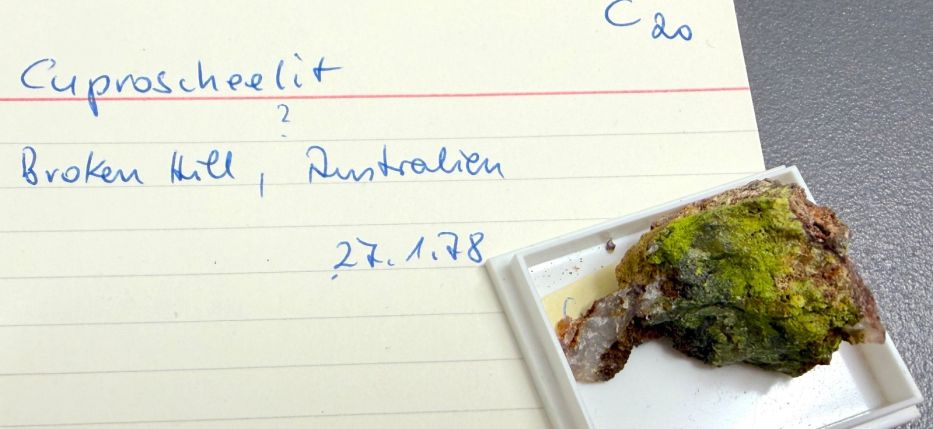 C 20
Cuproscheelit
?
Broken Hill, Australien
27.1.78